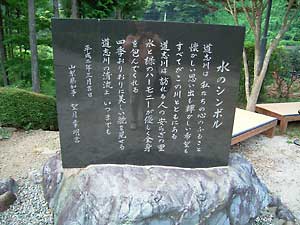 水のシンボル
道志川は 私たちの心のふるさと
懐かしい思い出も輝かしい希望も
すべてがこの川とともにある
道志川は訪れる人の安らぎの里
水と緑のハーモニーが優しく全身
を包んでくれる
四季おりおりに美しい姿を見せる
道志川の清流よ いつまでも
平成二年三月吉日
山梨県知事 望月幸明書